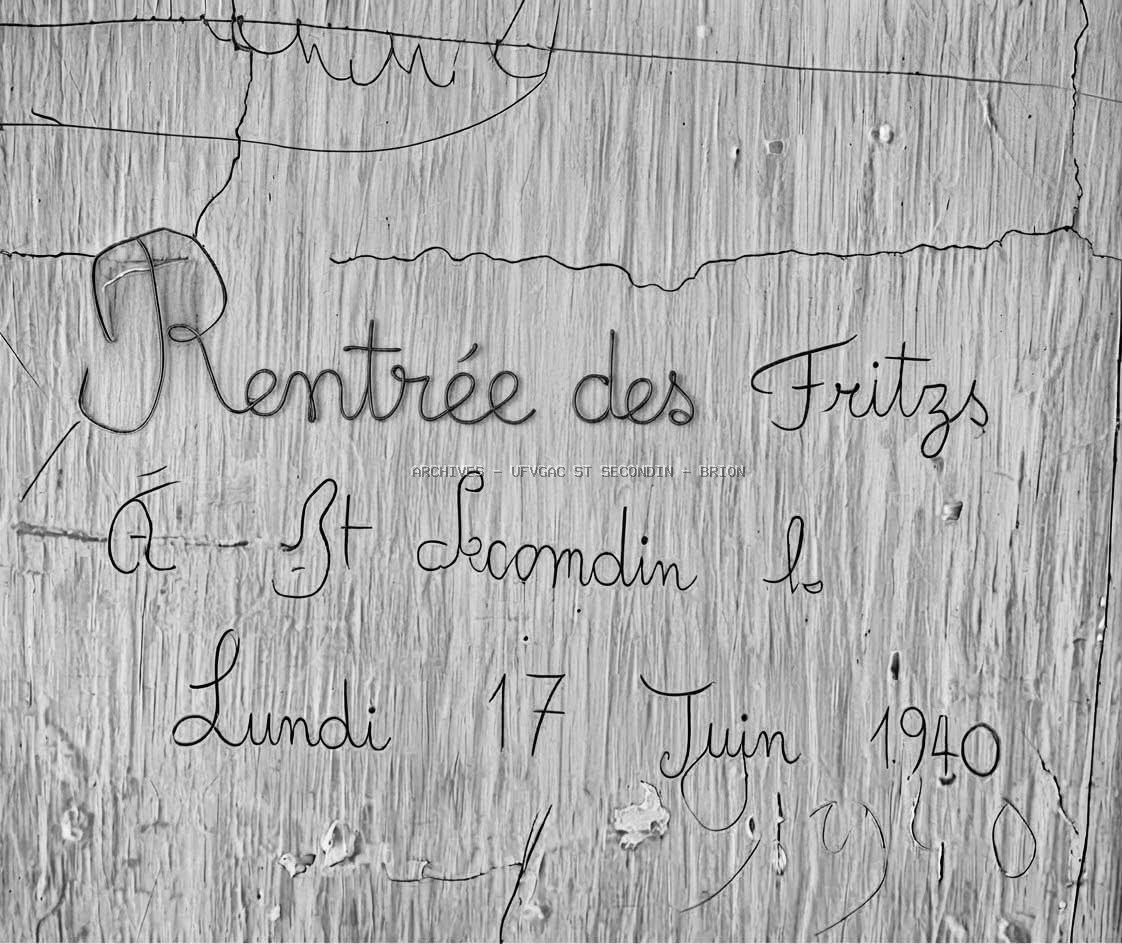 Rentrée des Fritzs
ARCHIVES - UFVGAC ST SECONDIN - BRION
À St Secomdin le
Lundi 17 Juin 1940
1940